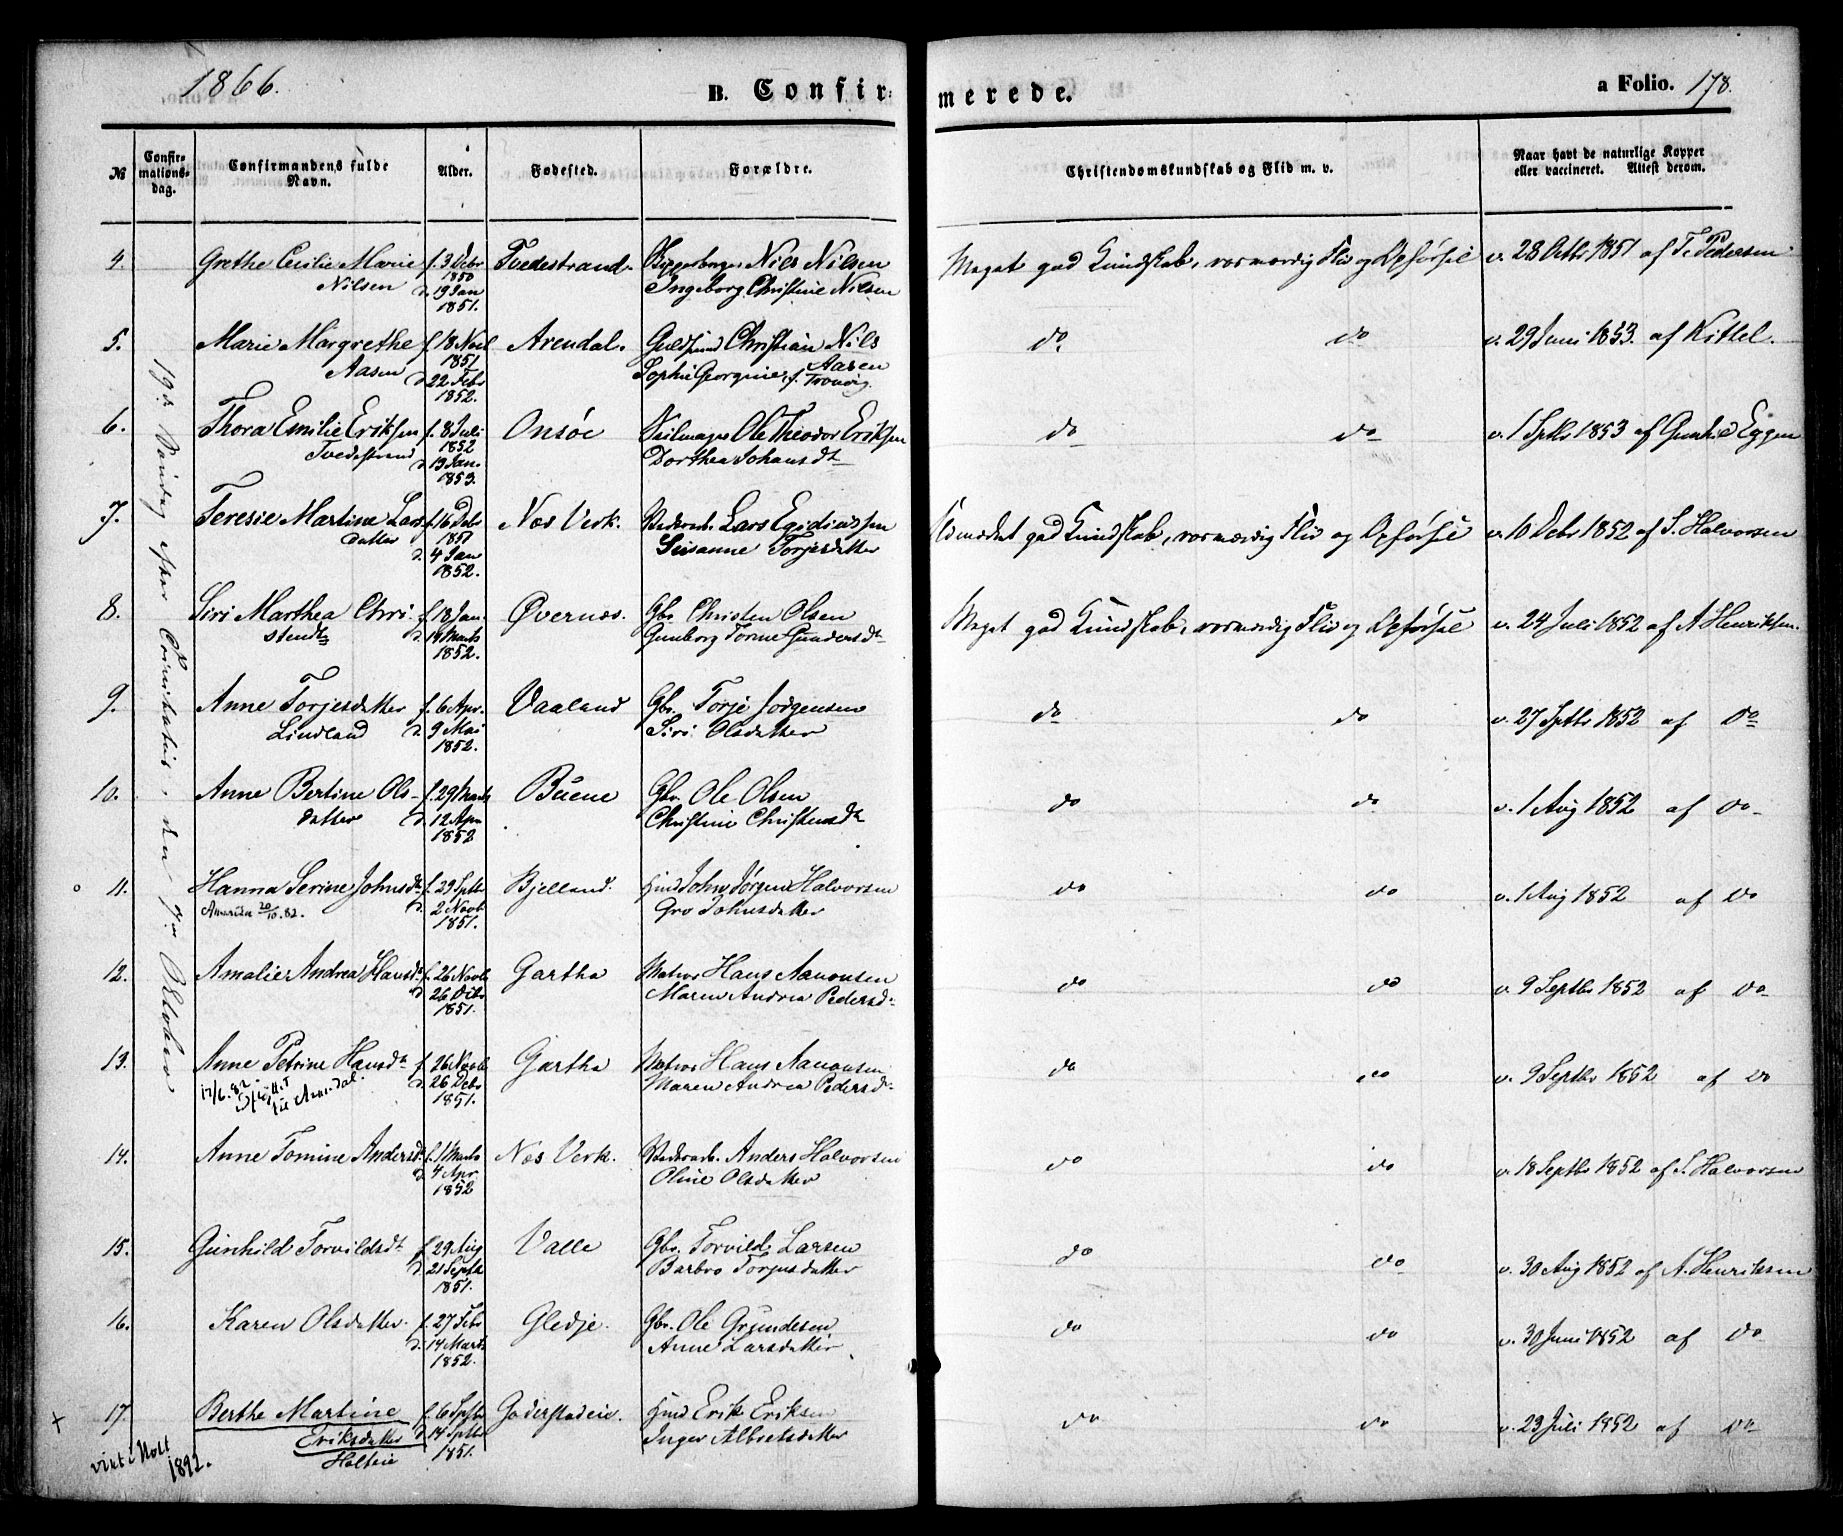 1866.
B. Confirmerede.
a Folio. 178.
№
Confirmationsdag.
Confirmandens fulde Navn.
Alder.
Fødested.
Forældre.
Christendomskundskab og Flid m. v.
Naar havt de naturlige Kopper eller vaccineret. Attest derom.
19de Søndag efter Trinitatis, den 7de Oktober
4. Grethe Cecilie Marie Nilsen f. 3 Debr 1850 d. 19 Jan 1851. Tvedestrand. Nils Nilsen Ingeborg Christine Nilsen Meget god Kundskab, rosværdig Flid og Opførsel v. 28 Octb 1851 af T. Pedersen
5. Marie Margrethe Aasen f. 18 Novb 1851 d. 22 Feb 1852. Arendal. Guldsmed Christian Nils Aasen Sophie Georgine, f. Tronvig. do do v. 29 Juni 1853. af Kittel.
6. Thora Emilie Eriksen Tvedestrand f. 8 Juli 1852 d. 13 Jan. 1853. Onsøe Seilmager Ole Theodor Eriksen Dorthea Johansdt do do v. 1 Sptb 1853 af Gunhild Eggen
7. Teresie Martine Larsdatter f. 16 Debr 1851 d. 4 Jan 1852. Næs Verk. Værksarb. Lars Egidiussen Susanne Torjesdatter Udmærket god Kundskab, rosværdig Flid og Opførsel v. 10 Debr 1852 af S. Halvorsen
8. Siri Marthea Christendt f. 18 Jan. d. 14 Marts 1852. Øvernæs. Gbr. Christen Olsen Gunborg Tomine Gundersdt Meget god Kundskab, rosværdig Flid og Opførsel v. 24 Juli 1852 af A Henriksen.
9. Anne Torjesdatter Lindland f. 6 Apr. d. 9 Mai 1852. Vaaland Gbr. Torje Jørgensen Siri Olsdatter do do v. 27 Sptb 1852 af Do
10. Anne Bertine Olsdatter f. 29 Marts d. 12 Apr 1852 Buene Gbr. Ole Olsen Christine Christensdt do do v. 1 Aug 1852 af Do
11. Hanna Serine Johnsdt f. 29 Sptb d. 2 Novb 1851. Bjelland. Hmd John Jørgen Halvorsen Gro Johnsdatter do do v. 1 Aug 1852 af Do
Amerika 20/10.82.
12. Amalie Andrea Hansdt f. 26 Novb d. 26 Debr 1851. Gartha Matros Hans Aanonsen Maren Andrea Pedersdt do do v. 9 Septbr 1852 af Do
13. Anne Petrine Hansdt f. 26 Novb d. 26 Debr 1851. Gartha Matros Hans Aanonsen Maren Andrea Pedersdt do do v. 9 Septbr 1852 af Do
17/6.82. til Arendal.
14. Anne Tomine Andersdt f. 1 Marts d. 4 Apr. 1852 Næs Verk. Værksarb. Anders Halvorsen Oline Olsdatter do do v. 18 Septbr 1852 af S. Halvorsen
15. Gunhild Torvildsdt f. 29 Aug d. 21 Septb 1851. Valle Gbr. Torvild Larsen Barbro Torjusdatter do do v. 30 Aug 1852 af A. Henriksen
16. Karen Olsdatter f. 27 Feb d. 14 Marts 1852. Gledje. Gbr. Ole Gundesen Anne Larsdatter do do v. 30 Juni 1852 af Do
17. Berthe Martine Eriksdatter Holteie f. 6 Sptb d. 14 Sptb 1851. Goderstadeie. Hmd Erik Eriksen Inger Albretsdatter do do v. 23 Juli 1852 af Do
viet i Holt
1892.